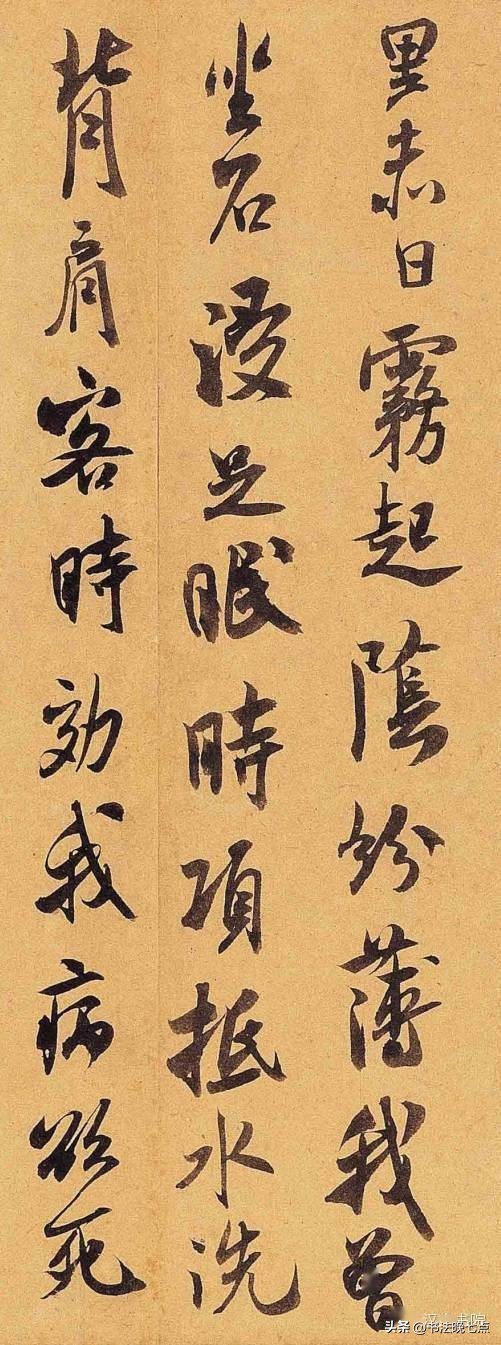 里赤日霧起隂紛薄我曾
坐石浸足眠時項抵水洗
背肩客時効我病欲死
书院
头条 @书法晚七点